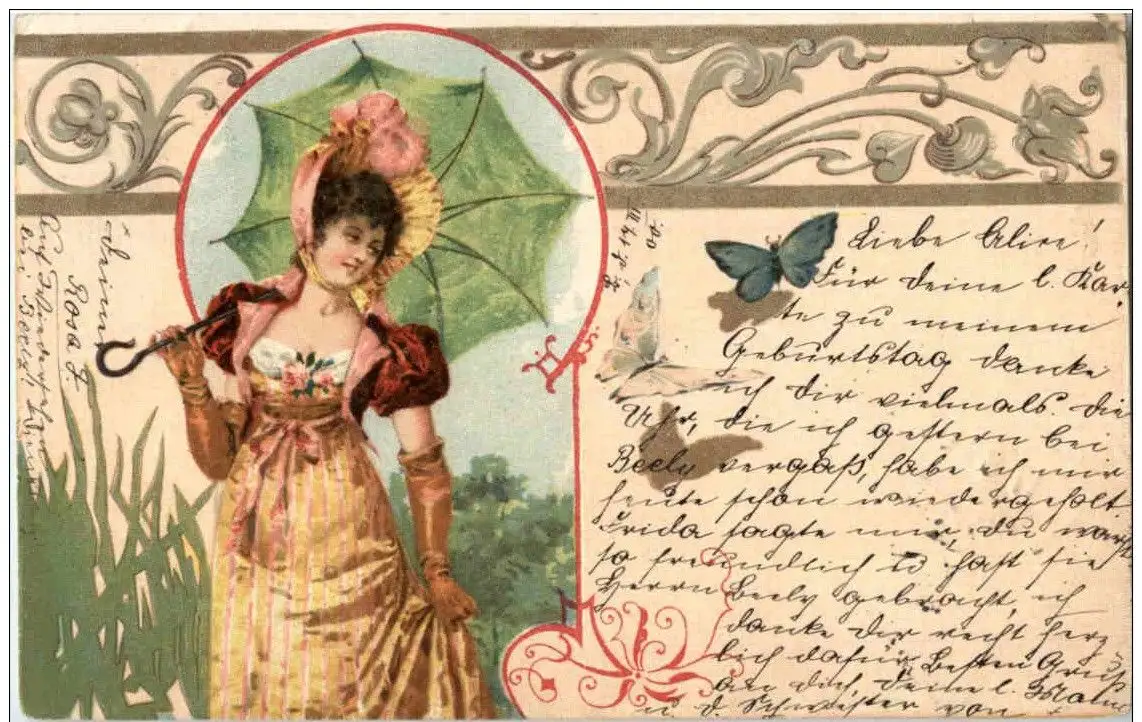 Liebe Alice!
Für deine l. Kar
te zu meinem
Geburtstag danke
ich dir vielmals. Die
Uhr, die ich gestern bei
Beely vergaß, habe ich mir
heute schon wieder geholt
Frida sagte mir, du warst
so freundlich u hast sie
Herrn Beely gebracht, ich
danke dir recht herz
lich dafür Besten Gruß
an dich, deine l. Mama
u d. Schwester von
deiner
Rosa L.
Auf Wiedersehen